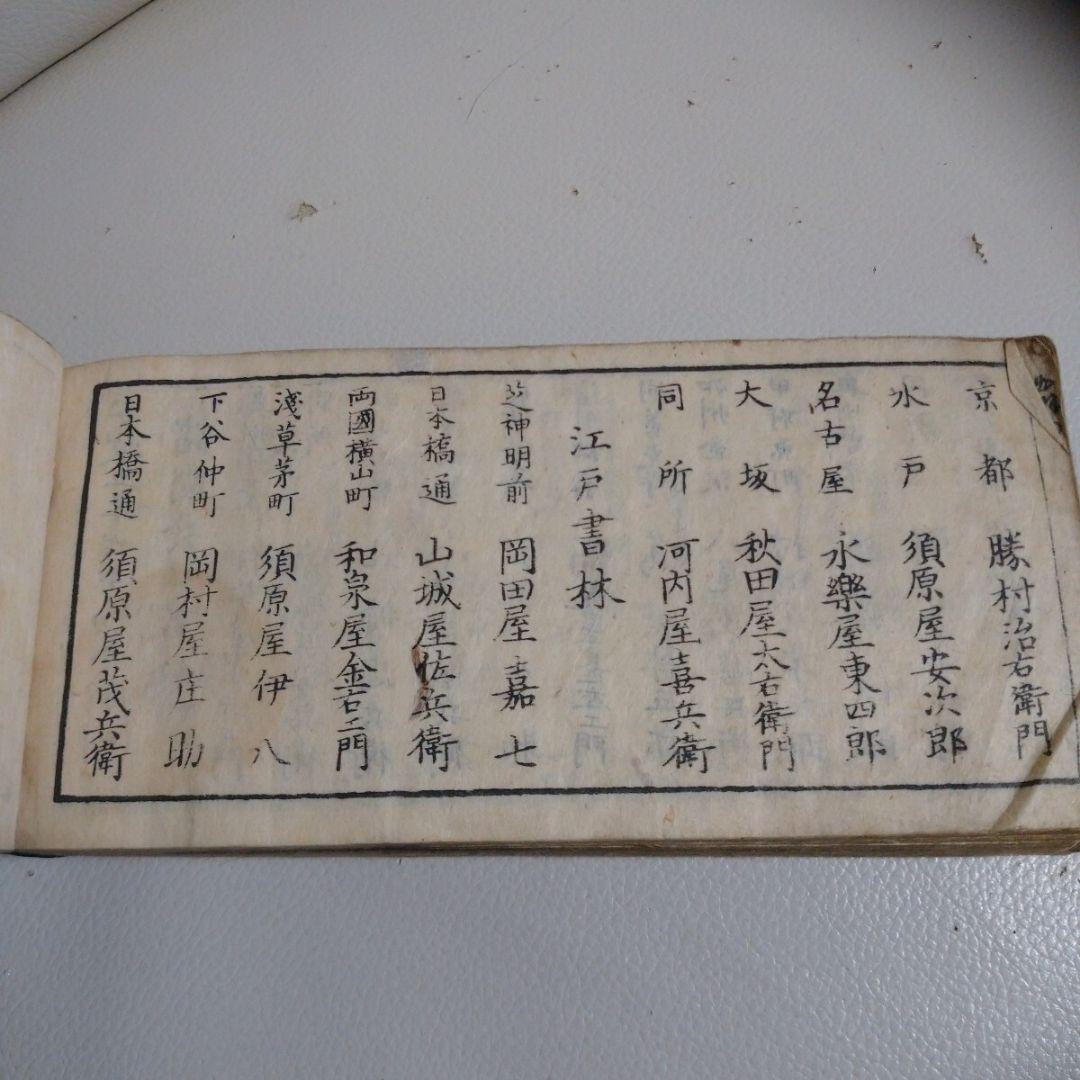 京都 勝村治右衛門
水戸 須原屋安次郎
名古屋 永樂屋東四郎
大坂 秋田屋太右衛門
同所 河内屋喜兵衛
江戸書林
芝神明前 岡田屋嘉七
日本橋通 山城屋佐兵衛
両國橫山町 和泉屋金右エ門
淺草茅町 須原屋伊八
下谷仲町 岡村屋庄助
日本橋通 須原屋茂兵衛